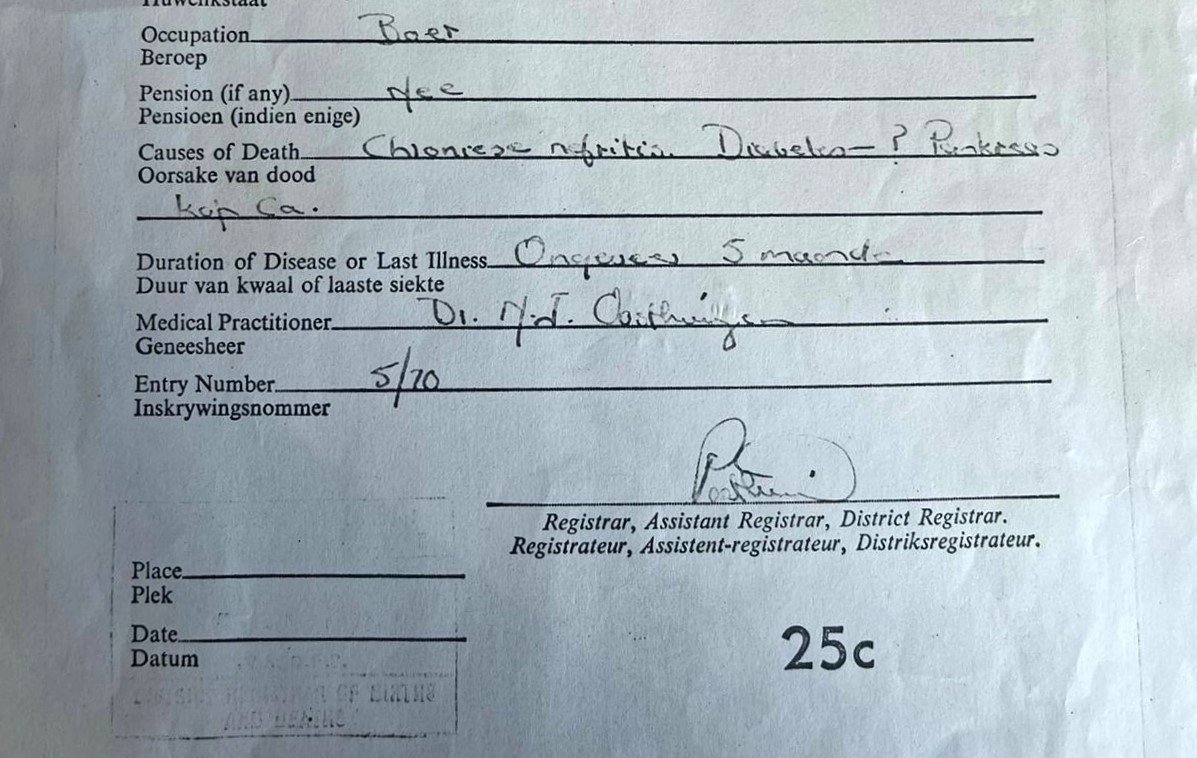 Huwelikstaat
Occupation Boer
Beroep
Pension (if any) Nee
Pensioen (indien enige)
Causes of Death Chroniese nefritis. Diabetes – ? Pankreas
Oorsake van dood
kop Ca.
Duration of Disease or Last Illness Ongeveer 5 maande
Duur van kwaal of laaste siekte
Medical Practitioner Dr. N.J. Oosthuizen
Geneesheer
Entry Number 5/70
Inskrywingsnommer
Registrar, Assistant Registrar, District Registrar.
Registrateur, Assistent-registrateur, Distriksregistrateur.
Place
Plek
Date
Datum
25c
OF BIRTHS
AND DEATHS